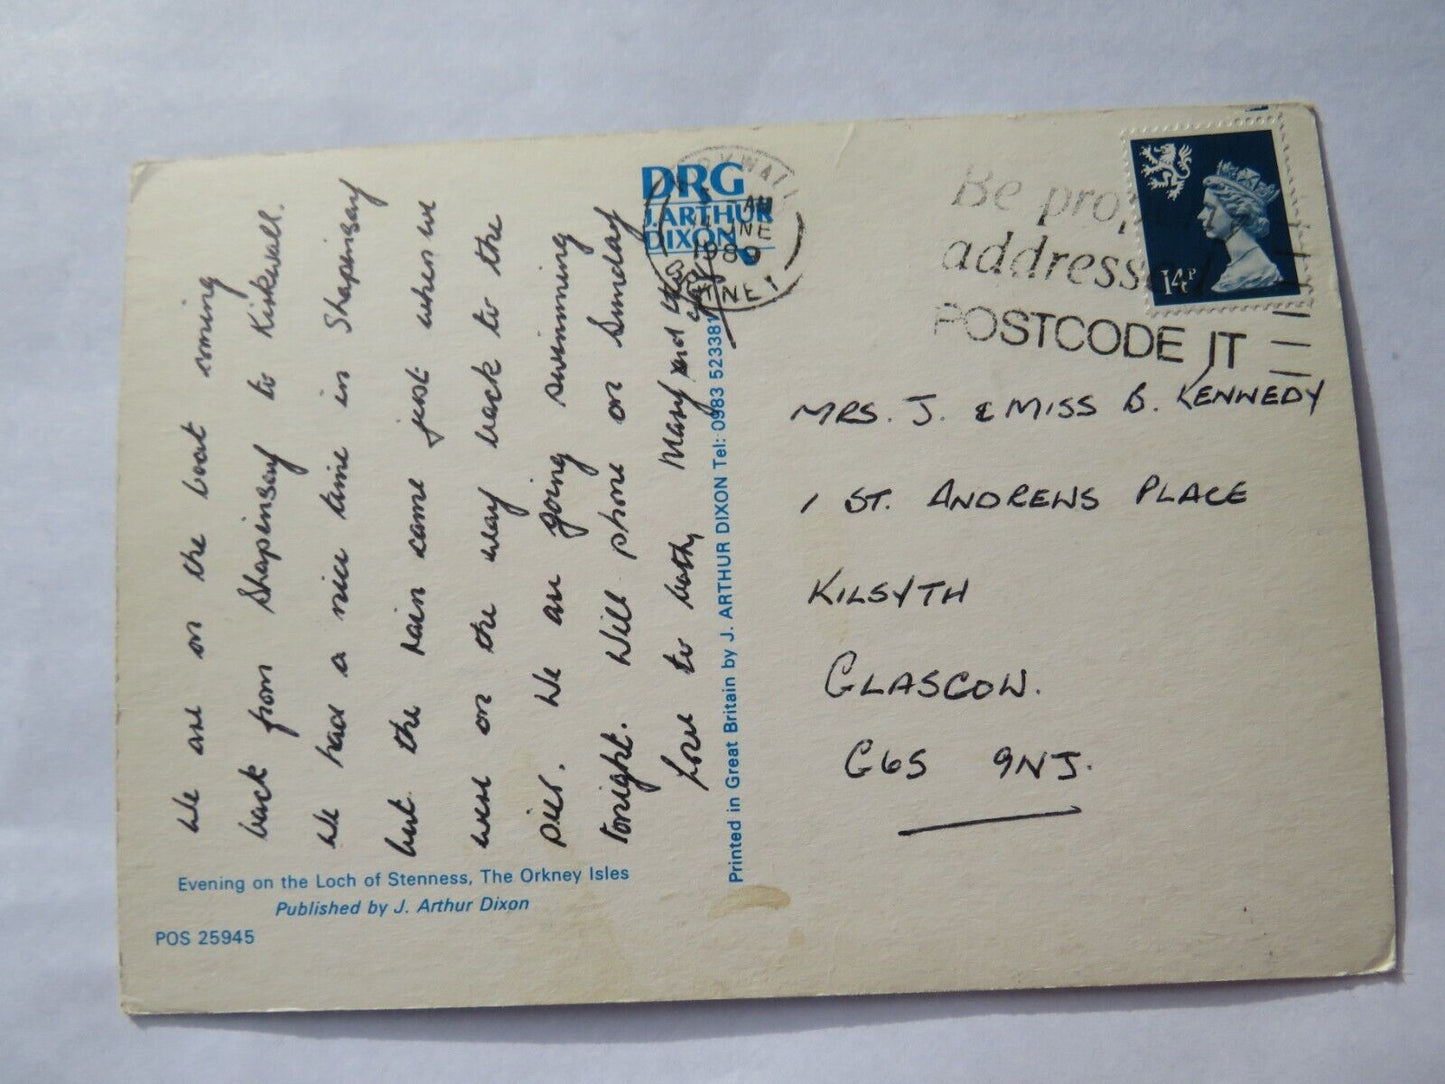 We are on the boat coming
back from Shapinsay to Kirkwall.
We had a nice time in Shapinsay
but the rain came just when we
were on the way back to the
pier. We are going swimming
tonight. Will phone on Sunday
Love to both, Mary and the
Evening on the Loch of Stenness, The Orkney Isles
Published by J. Arthur Dixon
POS 25945
DRG
J. ARTHUR
DIXON
Printed in Great Britain by J. ARTHUR DIXON Tel: 0983 523381
AM
1989
ORKNEY
Be
POSTCODE IT
14P
MRS. J. & MISS B. KENNEDY
1 ST. ANDREWS PLACE
KILSYTH
GLASGOW.
G65 9NJ.